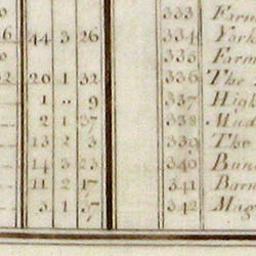 333 Farm
6 44 3 26 334 York
335 Farm
32 20 1 32 336 The
1 .. 9 337 High
2 1 37 338 Mud
13 2 3 339 The
14 3 23 340 Bun
11 2 17 341 Barn
3 1 37 342 Mag